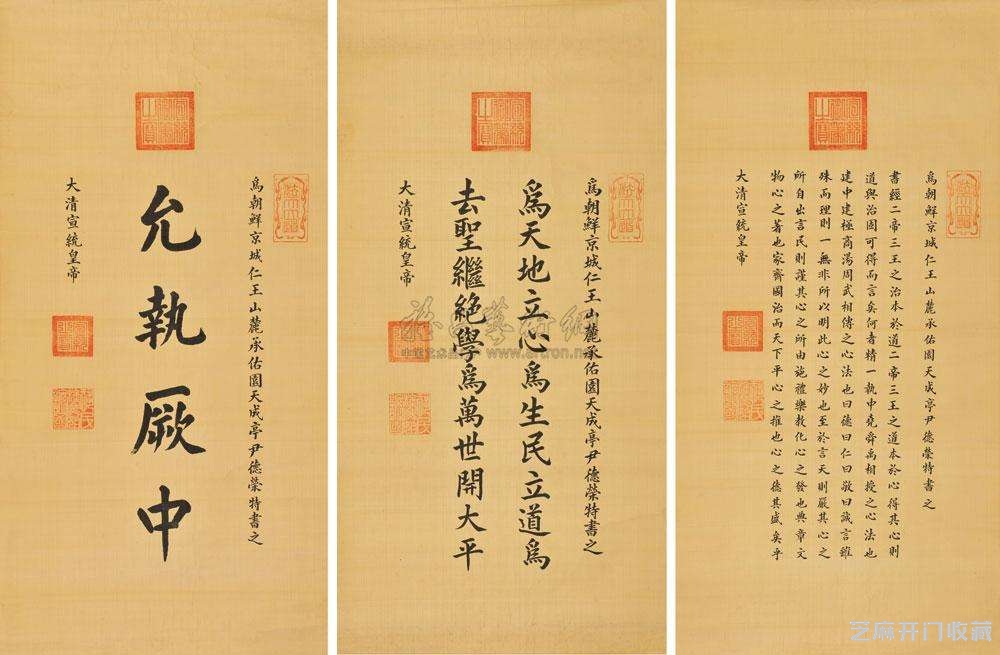 爲朝鮮京城仁王山麓承佑園天成亭尹德榮特書之
允執厥中
大清宣統皇帝
爲朝鮮京城仁王山麓承佑園天成亭尹德榮特書之
爲天地立心爲生民立道爲
去聖繼絕學爲萬世開大平
大清宣統皇帝
爲朝鮮京城仁王山麓承佑園天成亭尹德榮特書之
書經二帝三王之治本於道二帝三王之道本於心得其心則
道與治固可得而言矣何者精一執中堯舜禹相授之心法也
建中建極商湯周武相傳之心法也曰德曰仁曰敬曰誠言雖
殊而理則一無非所以明此心之妙也至於言天則嚴其心之
所自出言民則謹其心之所由施禮樂教化心之發也典章文
物心之著也家齊國治而天下平心之推也心之德其盛矣乎
大清宣統皇帝
www.artron.net
芝麻开门收藏